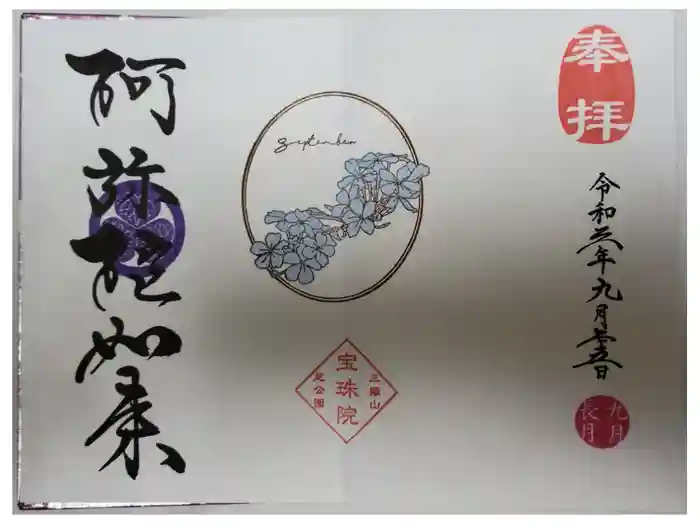 奉拝
令和三年九月二十五日
九月
長月
September
三縁山
宝珠院
芝公園
阿弥陀如来